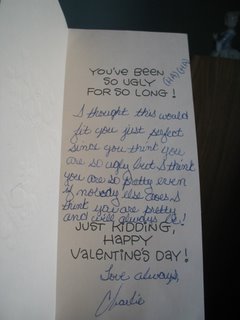 YOU'VE BEEN
SO UGLY
FOR SO LONG!
(HA)(HA)
I thought this would
fit you just perfect
since you think you
are so ugly but I think
you are so pretty even
if nobody else does I
think you are pretty
and will always be!
JUST KIDDING,
HAPPY
VALENTINE'S DAY!
Love always,
Charlie